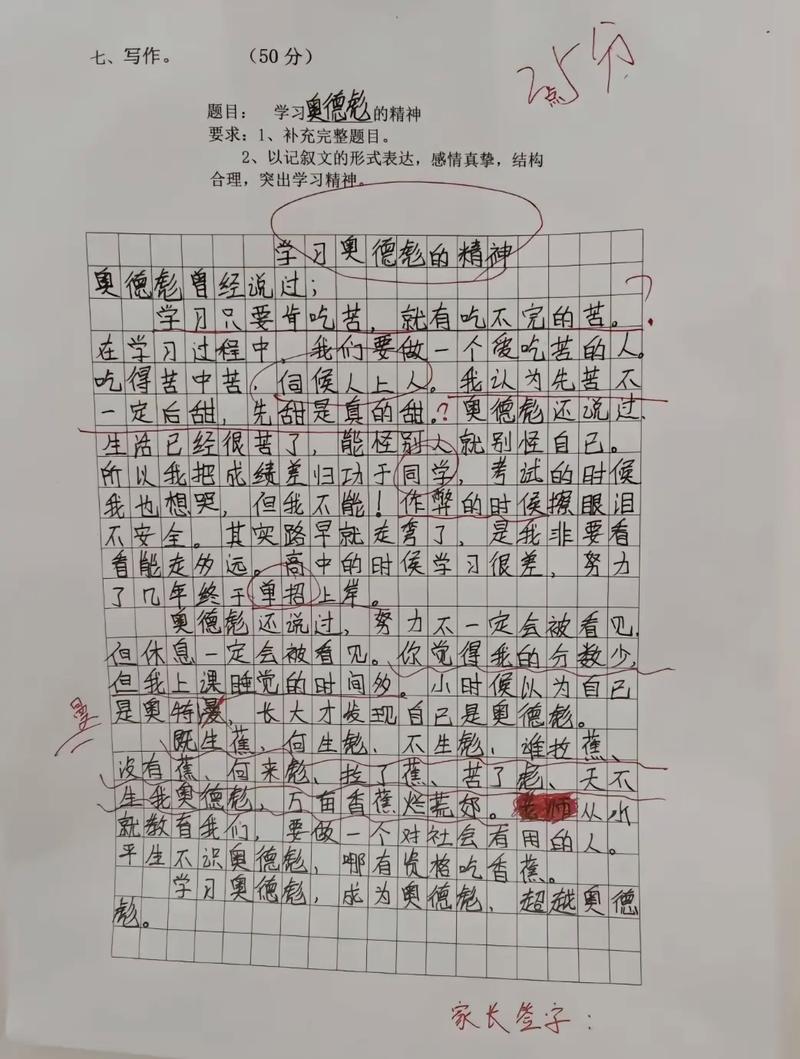 七、写作。 （50 分）
2.5分
题目： 学习奥德彪的精神
要求：1、补充完整题目。
2、以记叙文的形式表达，感情真挚，结构
合理，突出学习精神。
学习奥德彪的精神
奥德彪曾经说过；
学习只要肯吃苦，就有吃不完的苦。
?
在学习过程中，我们要做一个爱吃苦的人。
吃得苦中苦，伺候人上人。我认为先苦不
一定后甜，先甜是真的甜.?奥德彪还说过，
生活已经很苦了，能怪别人就别怪自己。
所以我把成绩差归功于同学，考试的时候
我也想哭，但我不能！作弊的时候擦眼泪
不安全。其实路早就走弯了，是我非要看
看能走多远。高中的时候学习很差，努力
了几年终于单招上岸。
奥德彪还说过，努力不一定会被看见，
但休息一定会被看见。你觉得我的分数少，
但我上课睡觉的时间多。小时候以为自己
是奥特曼，长大才发现自己是奥德彪。
既生蕉、何生彪、不生彪，谁拉蕉、
没有蕉、何来彪、拉了蕉、苦了彪、天不
生我奥德彪，万亩香蕉烂荒郊。老师从小
就教育我们，要做一个对社会有用的人。
平生不识奥德彪，哪有资格吃香蕉。
学习奥德彪，成为奥德彪、超越奥德
彪。
家长签字：